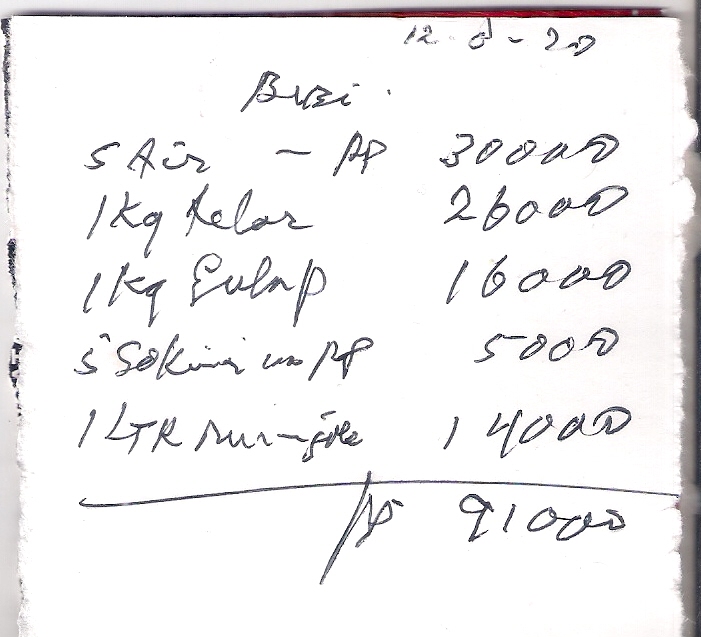 12-8-20
5 Air - Rp 30000
1 Kg Telor 26000
1 Kg Gula P 16000
5 Rp 5000
1 LTR Minyak 14000
Rp 91000